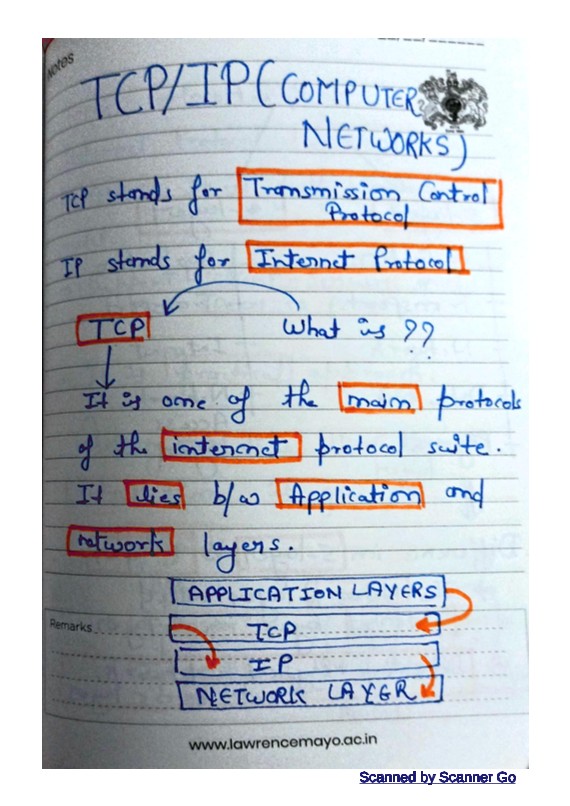 Notes
TCP/IP (COMPUTER
NETWORKS)
TCP stands for Transmission Control
Protocol
IP stands for Internet Protocol
TCP What is ??
It is one of the main protocols
of the internet protocol suite.
It lies b/w Application and
network layers.
APPLICATION LAYERS
Remarks
TCP
IP
NETWORK LAYER
www.lawrencemayo.ac.in
Scanned by Scanner Go